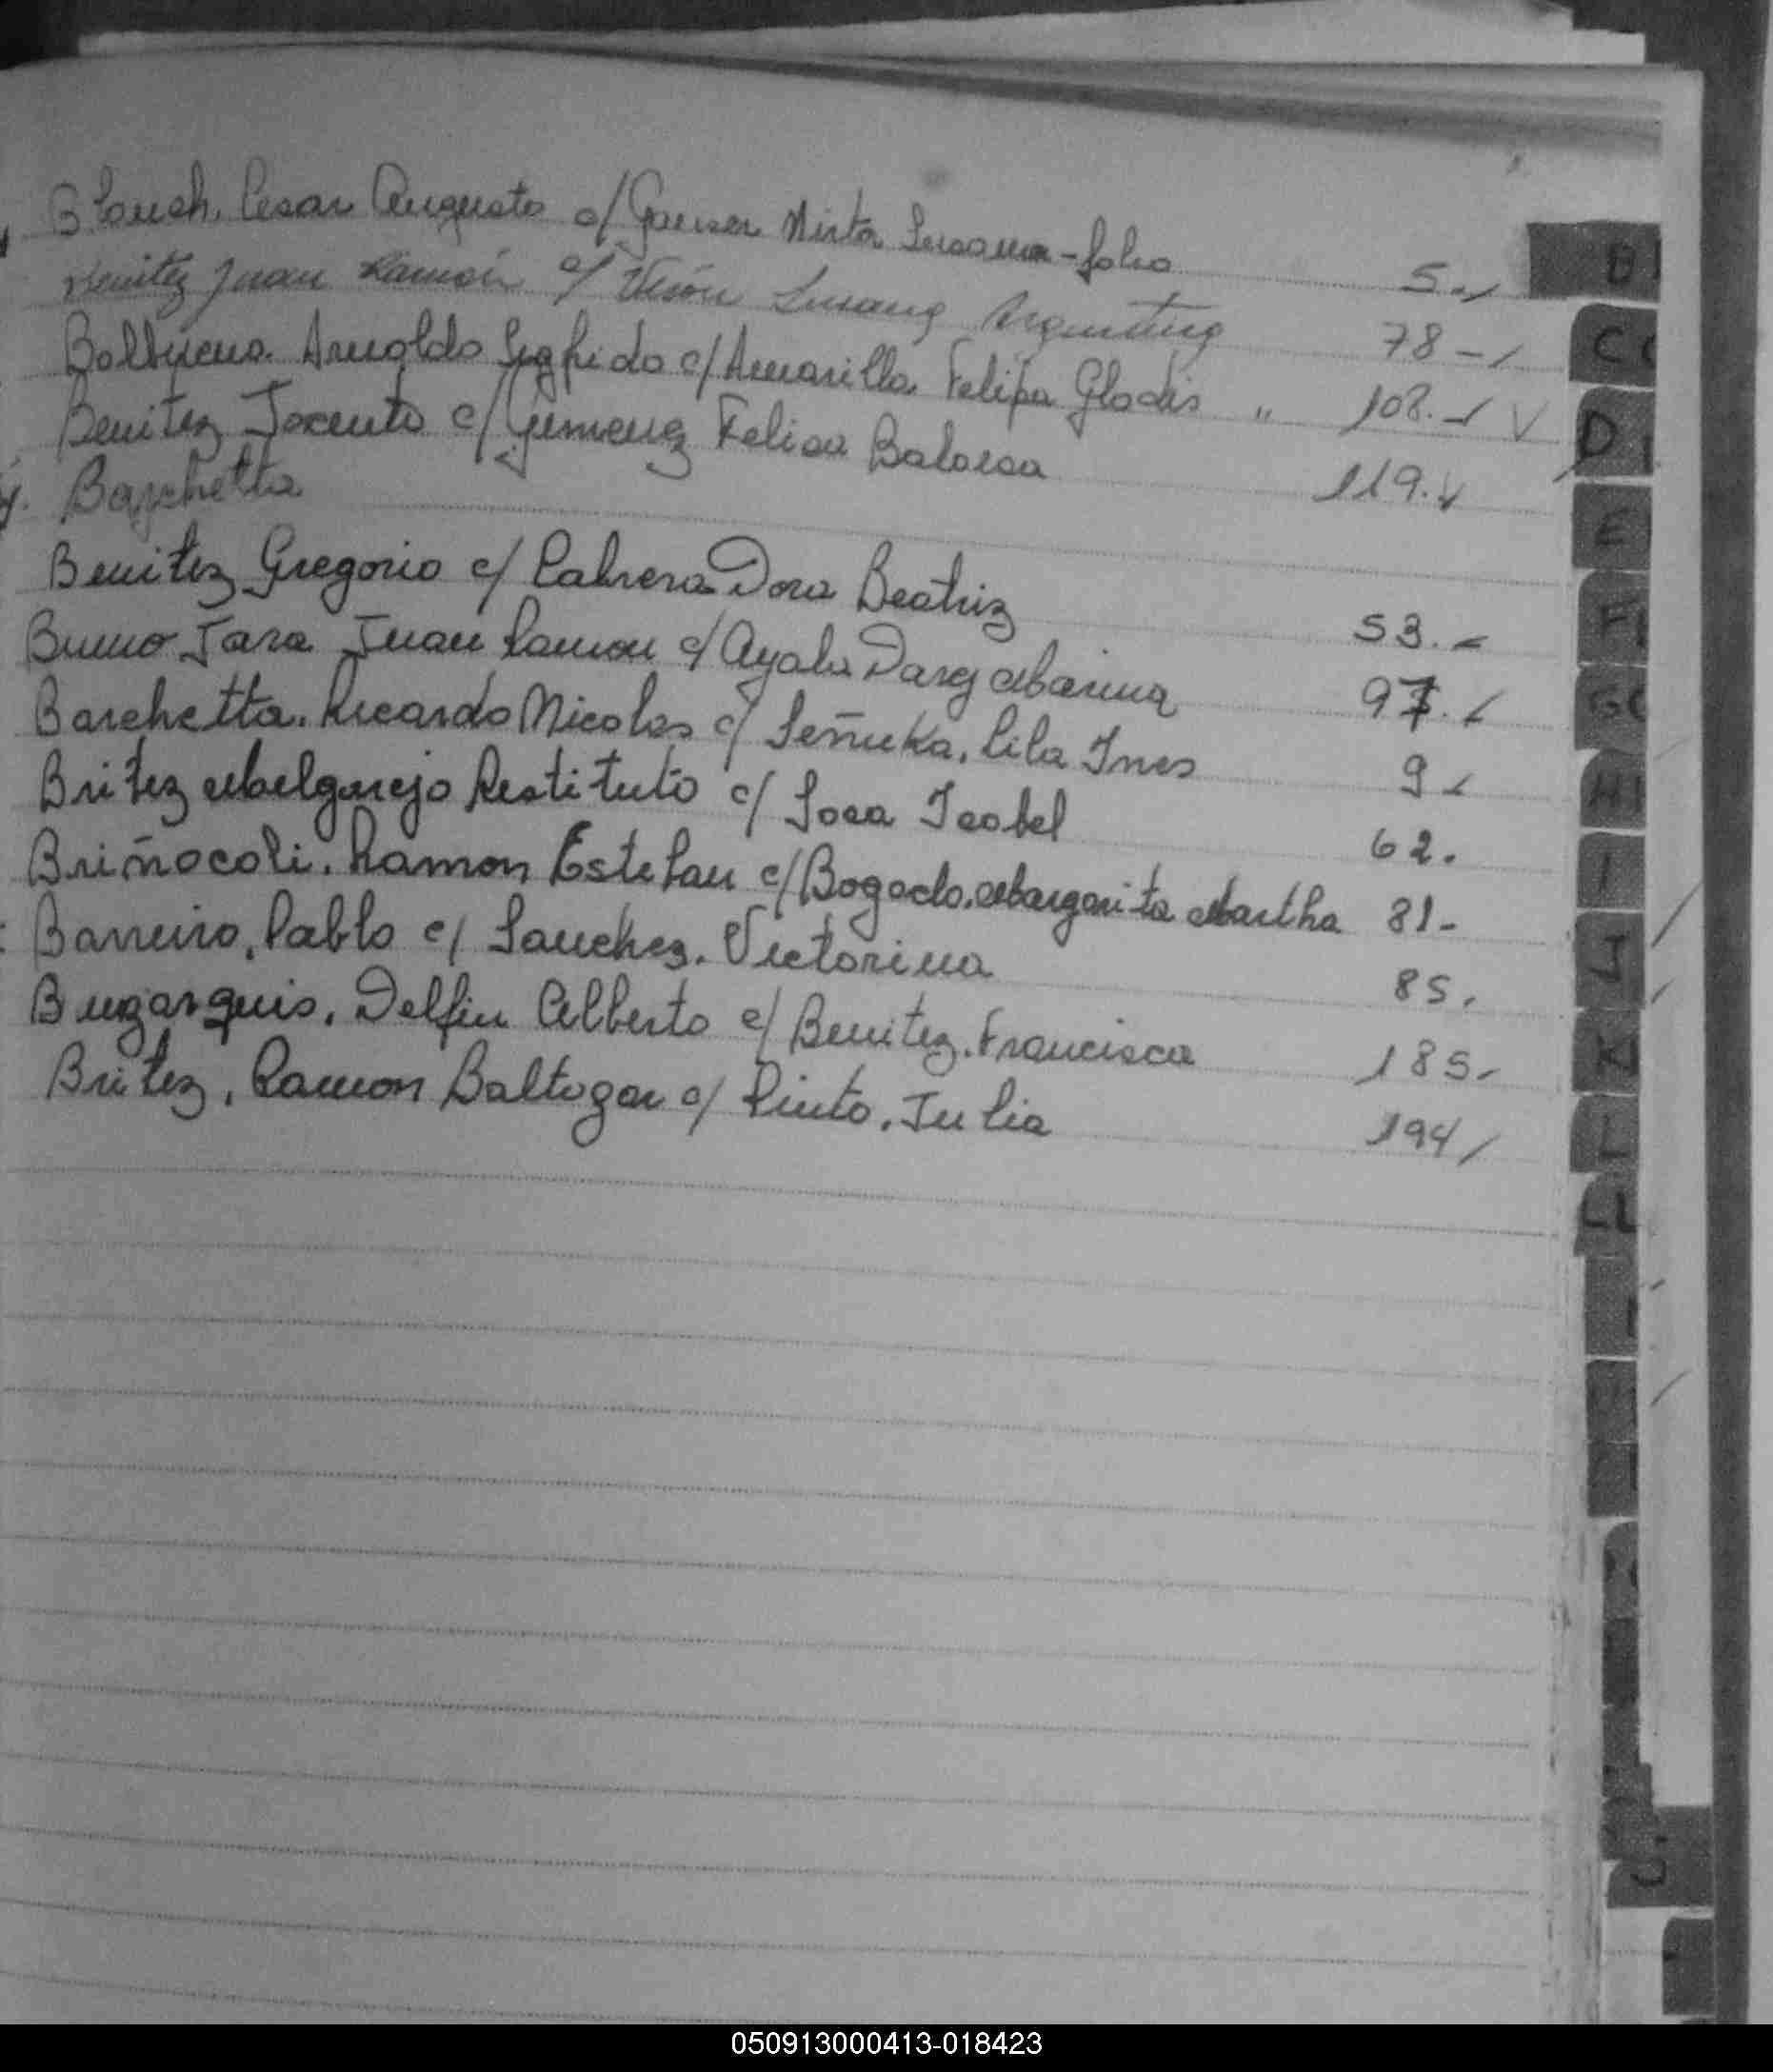 Blansh. Cesar Augusto c/ Gauser Mirta Susana - folio 5.-/
Benitez Juan Ramón c/ Verón Susana Argentina 78 - /
Balbuena. Arnoldo Sigfrido c/ Amarilla. Felipa Gladis " 108. - / V
Benitez Jacinto c/ Gimenez Felisa Balorea 119. V
Barchetta
Benitez Gregorio c/ Cabrera Dora Beatriz 53. -
Bueno Jara Juan Ramon c/ Ayala Dary Marina 97. /
Barchetta. Ricardo Nicolas c/ Señuka, Lila Ines 9 -
Britez Melgarejo Restituto c/ Sosa Isabel 62.
Briñocoli. Ramon Esteban c/ Bogado. Margarita Martha 81-
Barreiro, Pablo c/ Sanchez. Victorina 85.
Buzarquis, Delfin Alberto c/ Benitez. Francisca 185-
Britez, Ramon Baltazar c/ Pinto. Julia 194/
B
C
D
E
F
G
H
I
J
K
L
LL
050913000413-018423